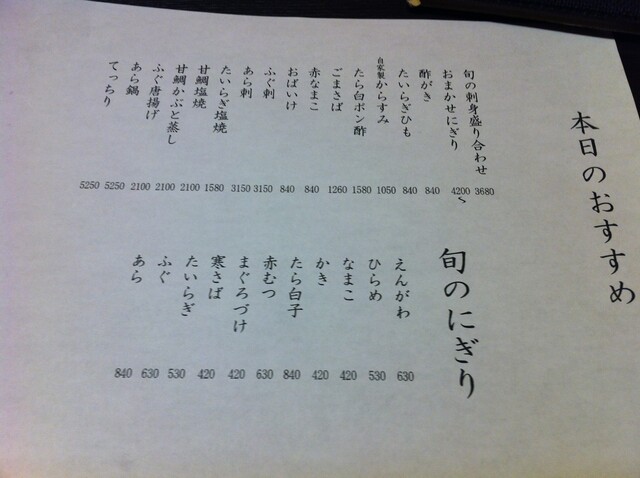 本日のおすすめ
旬の刺身盛り合わせ 3680
おまかせにぎり 4200〜
酢がき 840
たいらぎひも 840
自家製からすみ 1050
たら白ポン酢 1580
ごまさば 1260
赤なまこ 840
おばいけ 840
ふぐ刺 3150
あら刺 3150
たいらぎ塩焼 1580
甘鯛塩焼 2100
甘鯛かぶと蒸し 2100
ふぐ唐揚げ 2100
あら鍋 5250
てっちり 5250
旬のにぎり
えんがわ 630
ひらめ 530
なまこ 420
かき 420
たら白子 840
赤むつ 630
まぐろづけ 420
寒さば 420
たいらぎ 530
ふぐ 630
あら 840